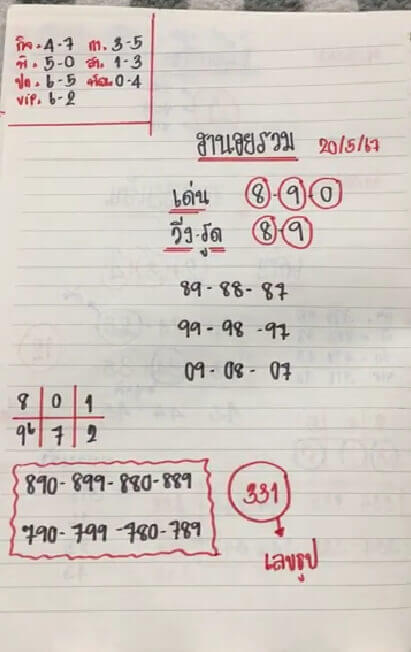 กิจ. 4-7 ก. 3-5
พิ. 5-0 สา. 1-3
ปก. 6-5 พัฒ. 0-4
VIP. 6-2
ฮานอยรวม 20/5/67
เด่น 8-9-0
วิ่ง-รูด 8-9
89-88-87
99-98-97
09-08-07
8 0 1
9 6 7 2
890-899-880-889
790-799-780-789
331
เลขธูป